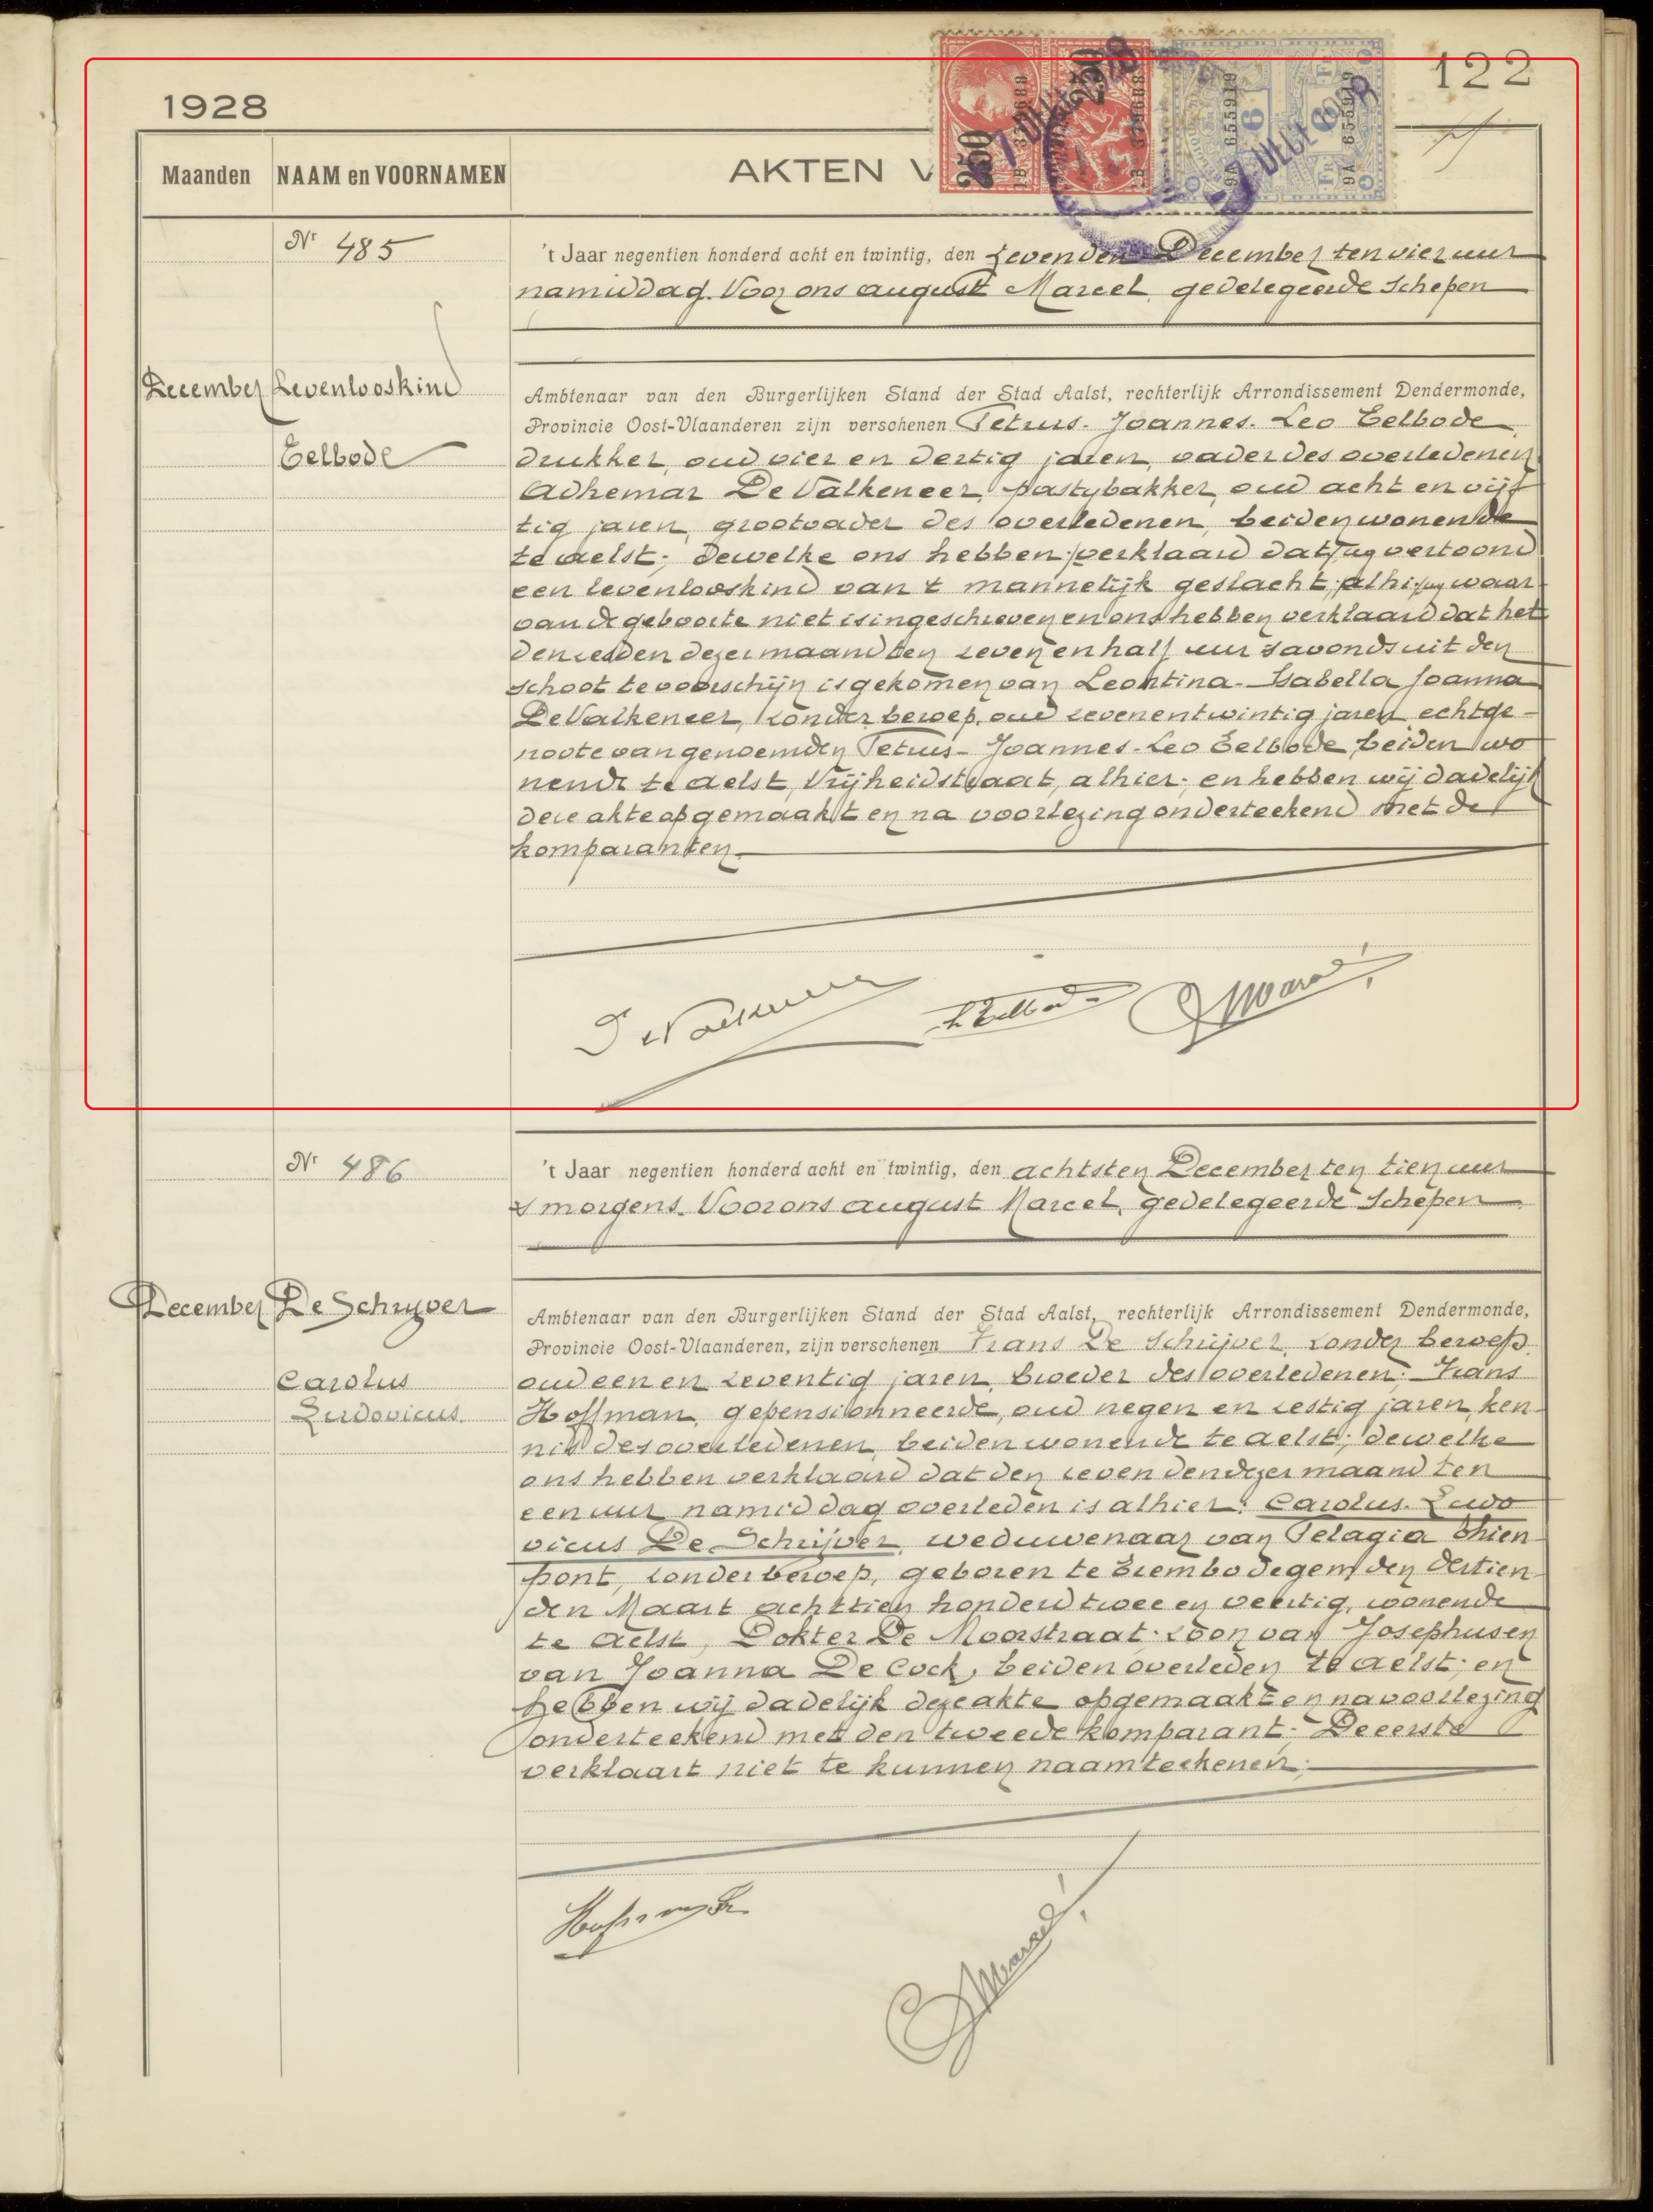 122
1928
Maanden NAAM en VOORNAMEN AKTEN V
250 1B 379688 250 1B 379688
6 Fr 9A 655919 6 Fr 9A 655919
-7 DECE 1928
Nr 485
't Jaar negentien honderd acht en twintig, den zevenden December ten vier uur
namiddag. Voor ons august Marcel, gedelegeerde Schepen
December Levenlooskind
Eelbode
Ambtenaar van den Burgerlijken Stand der Stad Aalst, rechterlijk Arrondissement Dendermonde,
Provincie Oost-Vlaanderen zijn verschenen Petrus-Joannes-Leo Eelbode
drukker, oud vier en dertig jaren, vader des overledenen
Adhemar De Valkeneer, pastybakker, oud acht en vijf
tig jaren, grootvader des overledenen, beiden wonende
te aelst; dewelke ons hebben verklaard dat vertoond
een levenlooskind van 't mannelijk geslacht, waar
van de geboorte niet is ingeschreven en ons hebben verklaard dat het
den zesden dezer maand ten zeven en half uur s'avonds uit den
schoot te voorschijn is gekomen van Leontina-Isabella Joanna
De Valkeneer, zonder beroep, oud zevenentwintig jaren, echtge-
noote van genoemden Petrus-Joannes-Leo Eelbode, beiden wo
nende te aelst, Vrijheidstraat, alhier; en hebben wij dadelijk
deze akte opgemaakt en na voorlezing onderteekend met de
komparanten.
De Valkeneer L. Eelbode A Marcel
Nr 486
't Jaar negentien honderd acht en twintig, den achtsten December ten tien uur
's morgens. Voor ons august Marcel, gedelegeerde Schepen
December De Schryver
Carolus
Ludovicus
Ambtenaar van den Burgerlijken Stand der Stad Aalst, rechterlijk Arrondissement Dendermonde,
Provincie Oost-Vlaanderen, zijn verschenen Frans De Schrijver, zonder beroep,
oud een en zeventig jaren, broeder des overledenen; Frans
Hoffman, gepensionneerde, oud negen en zestig jaren, ken-
nis des overledenen, beiden wonende te aelst; dewelke
ons hebben verklaard dat den zevenden dezer maand ten
een uur namiddag overleden is alhier: Carolus-Ludo
vicus De Schrijver, weduwenaar van Pelagia Thien-
pont, zonder beroep, geboren te Erembodegem den dertien-
den Maart achttien honderd twee en veertig, wonende
te Aelst, Dokter De Moorstraat; zoon van Josephus en
van Joanna De Cock, beiden overleden te aelst; en
hebben wij dadelijk deze akte opgemaakt en na voorlezing
onderteekend met den tweede komparant. De eerste
verklaart niet te kunnen naamteekenen.
A Marcel